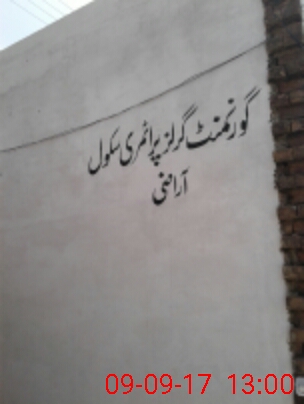 گورنمنٹ گرلز پرائمری سکول
آراضی
09-09-17 13:00